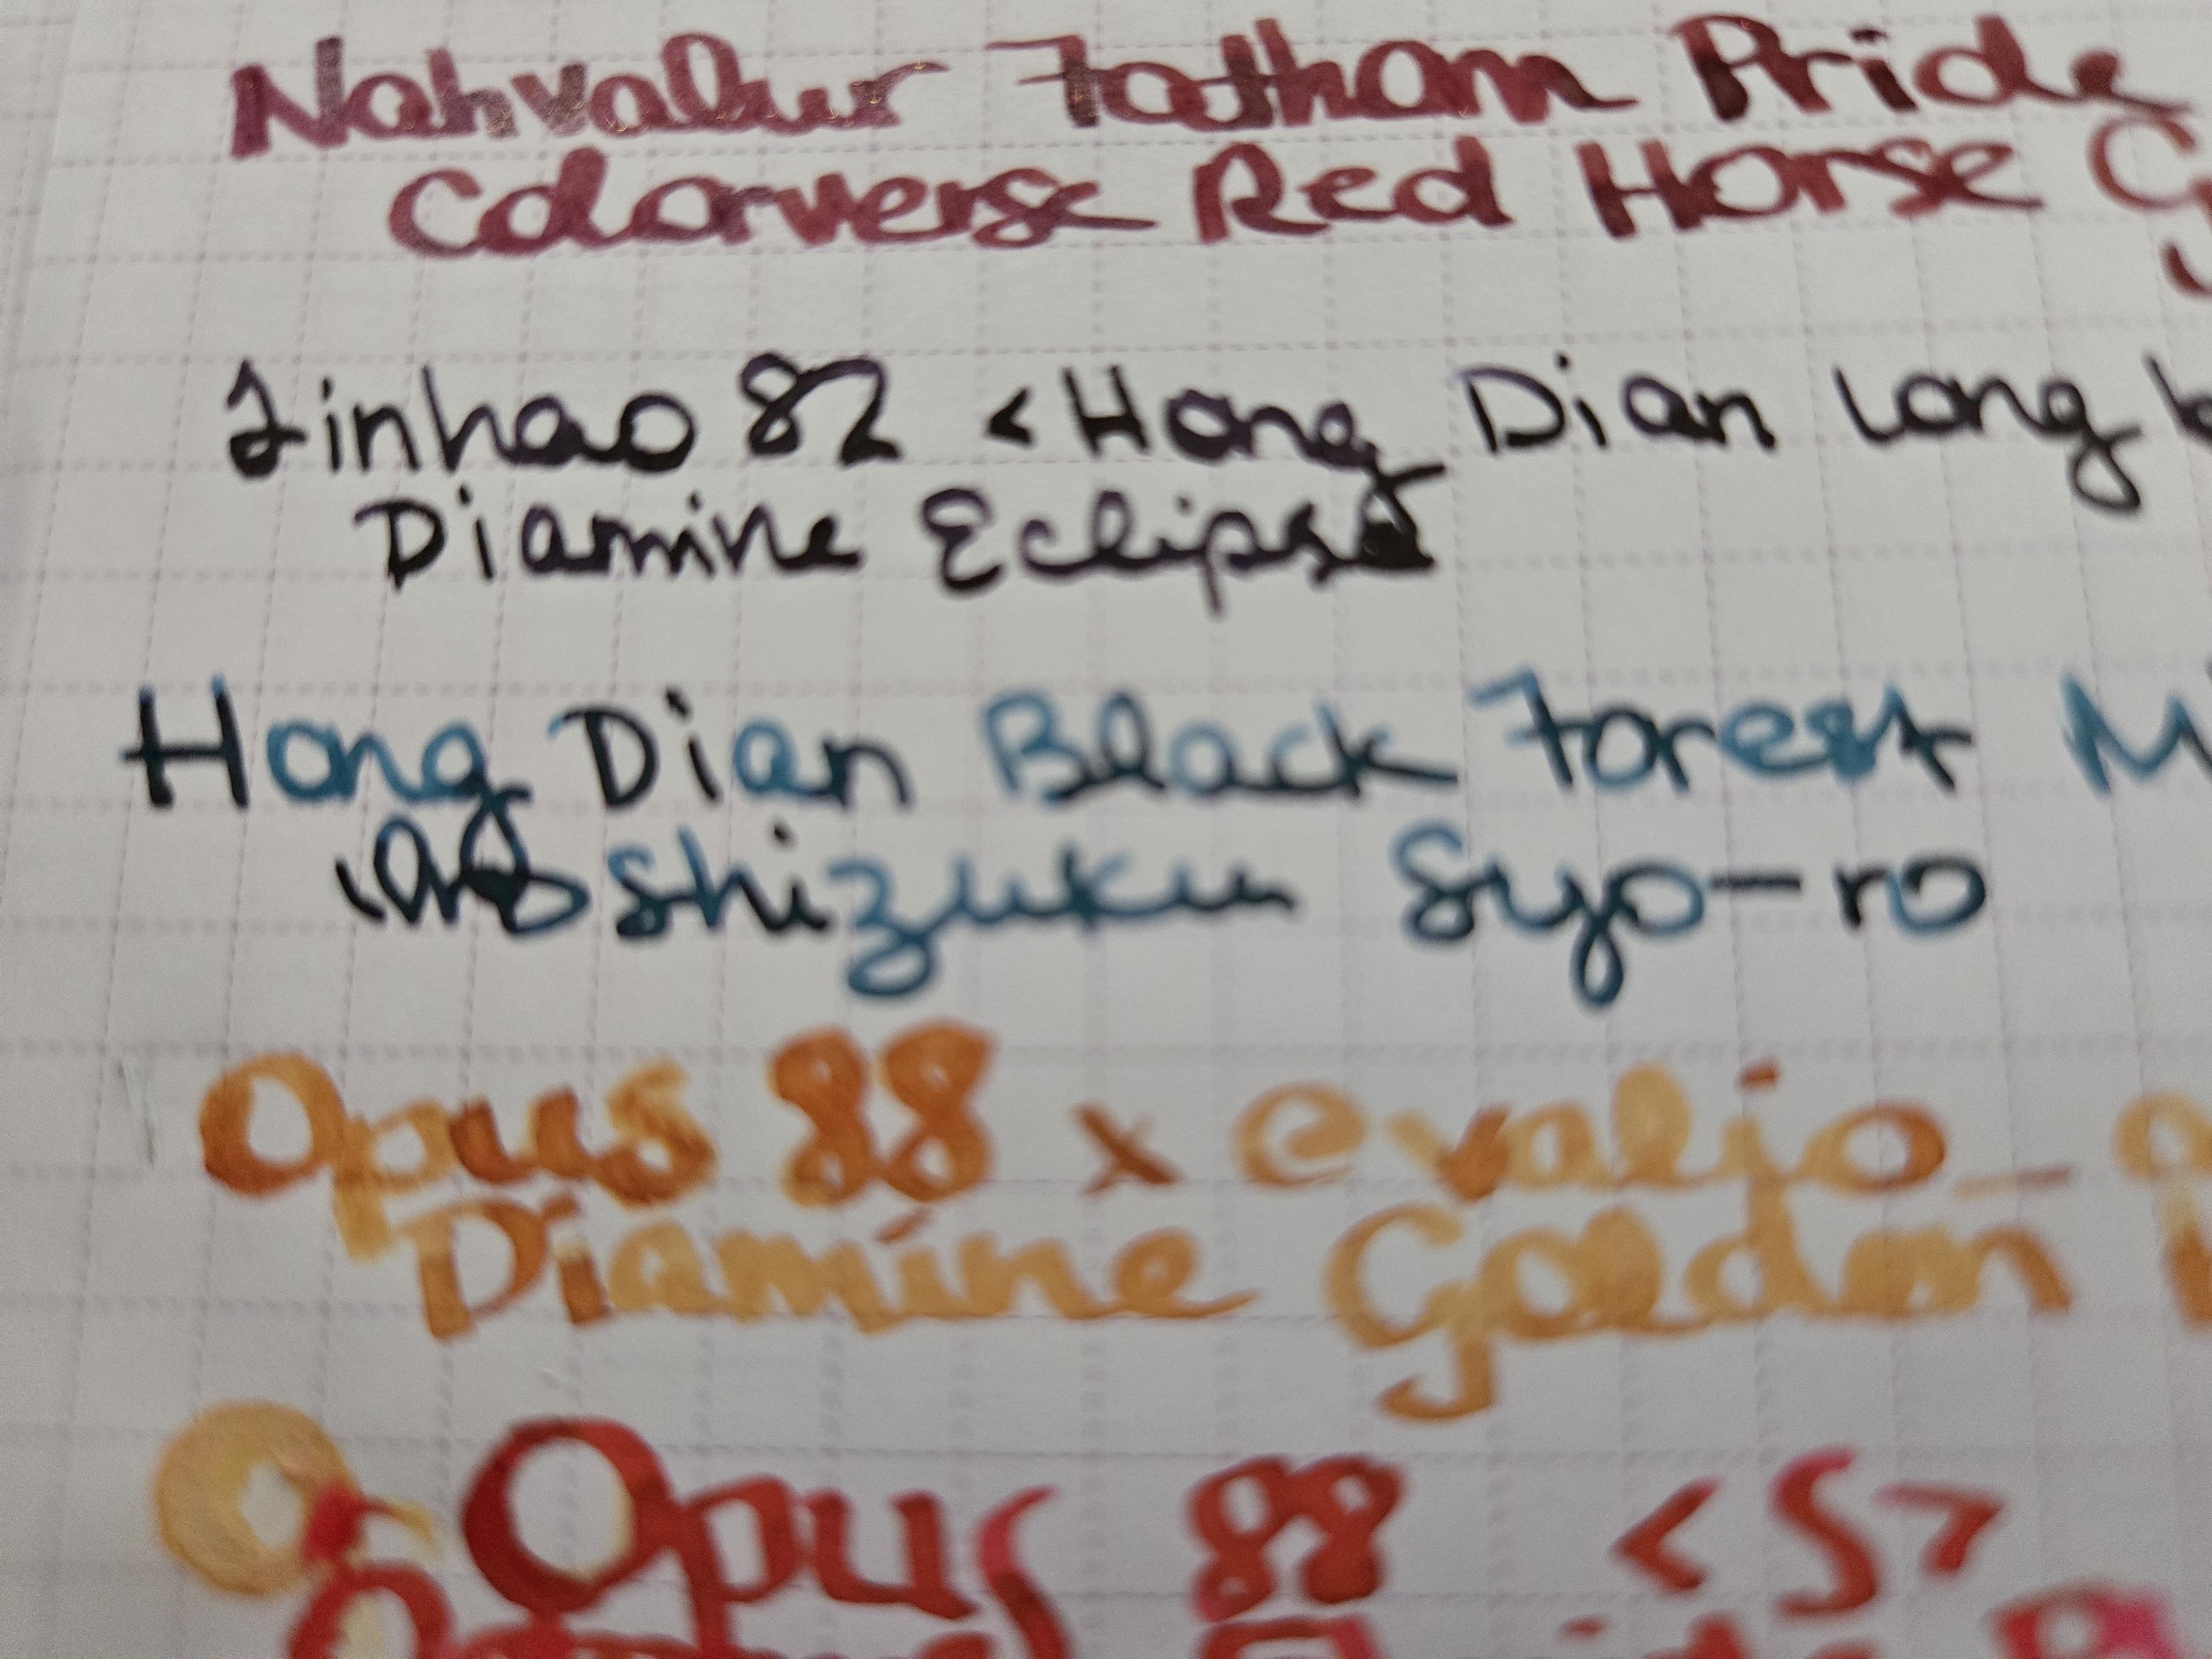 Nahvalur Fatham Pride
Colorverse Red Horse
Jinhao 82 <Hong Dian Long
Diamine Eclipse
Hong Dian Black Forest M
Iroshizuku Syo-ro
Opus 88 x evaljo_
Diamine Golden
Opus 88 <S>